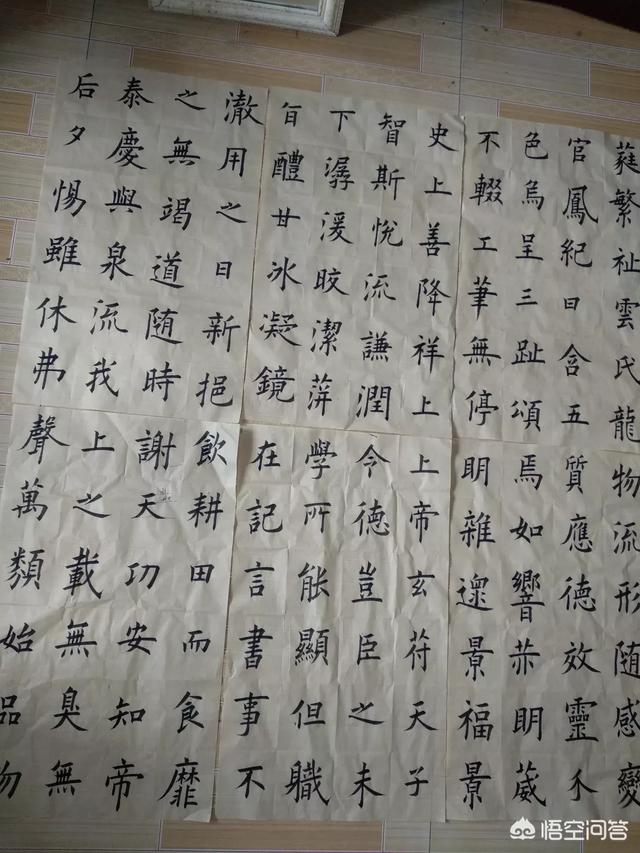 蕤繁祉雲氏龍
官鳳紀日含五
色烏呈三趾頌
不輟工筆無停
史上善降祥上
智斯悅流謙潤
下潺湲晈潔蓱
旨醴甘冰凝鏡
澈用之日新挹
之無竭道随時
泰慶與泉流我
后夕惕雖休弗
物流形随感變
質應德效靈介
焉如響赤明葳
明雜遝景福景
上帝玄符天子
令德豈臣之未
學所能顯但職
在記言書事不
飲耕田而食靡
謝天功安知帝
上之載無臭無
聲萬類始品物
悟空问答